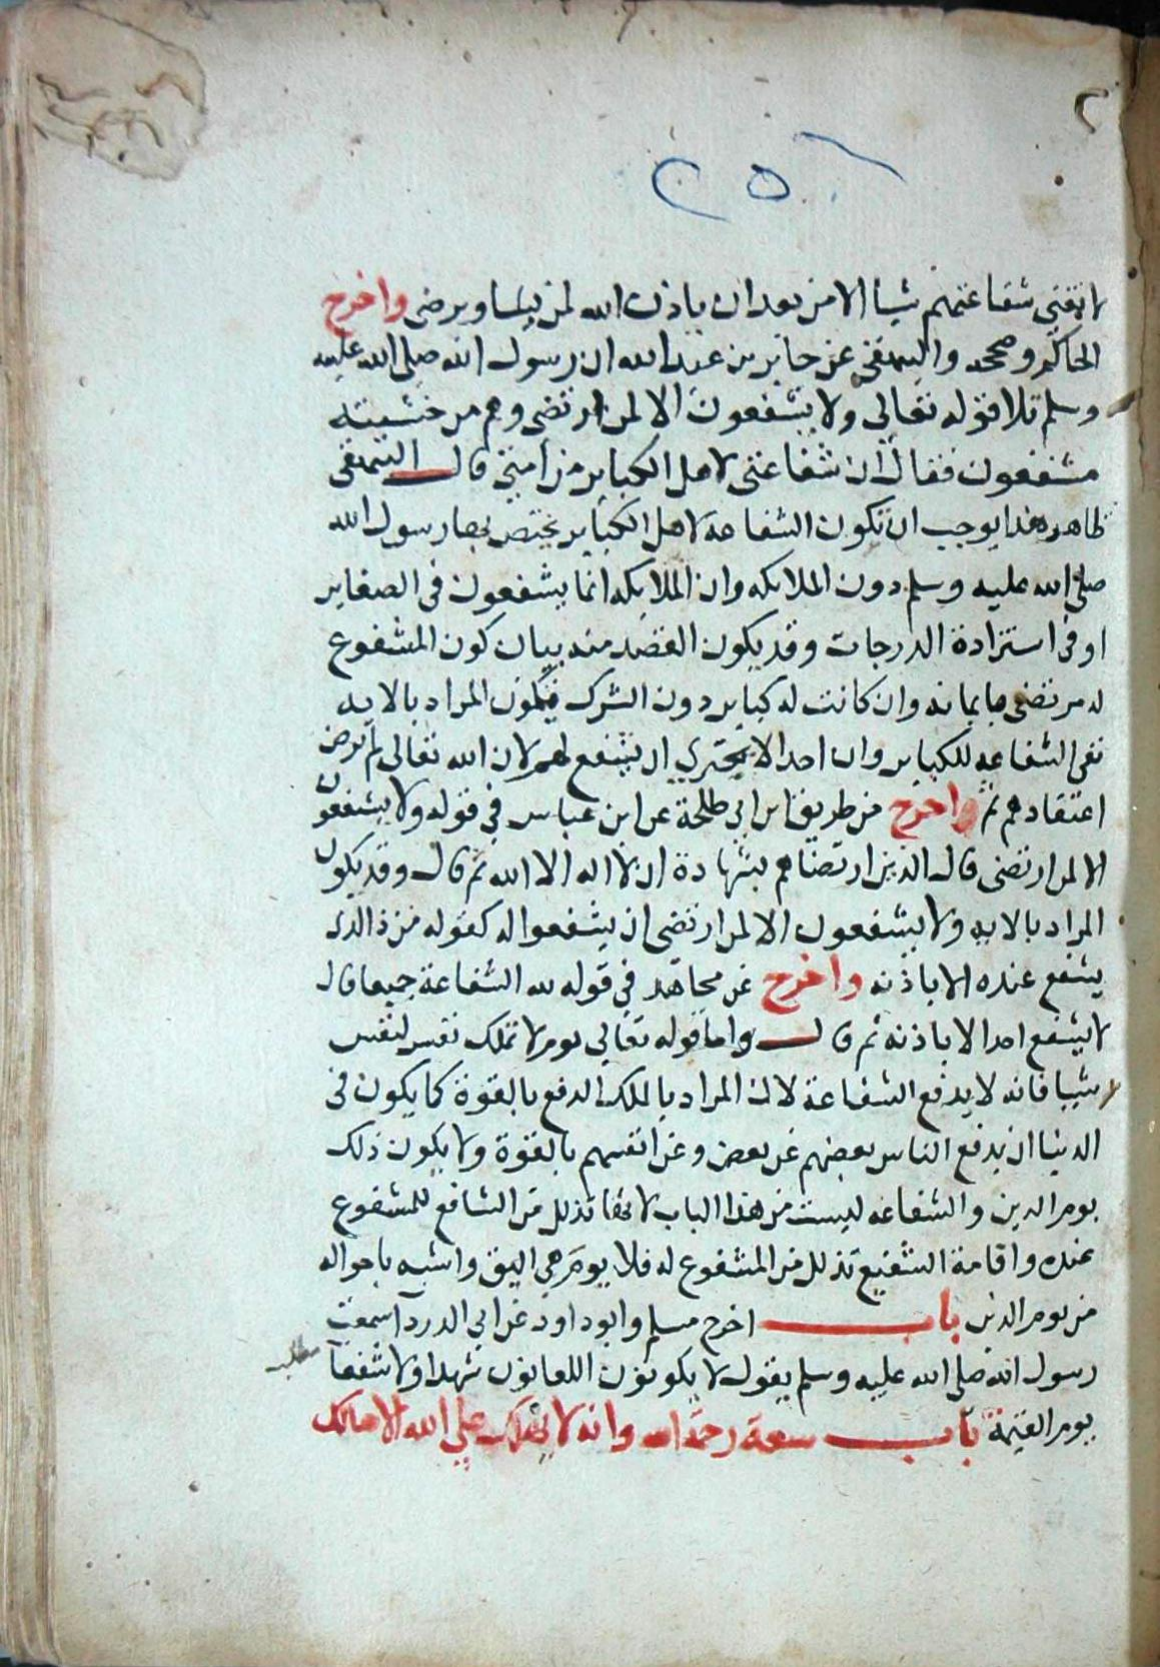 ٢
٢٥
لا تغنى شفاعتهم شيا الا من بعد ان ياذن الله لمن يشا ويرضى واخرج
الحاكم وصححه والبيهقى عن جابر بن عبد الله ان رسول الله صلى الله عليه
وسلم تلا قوله تعالى ولا يشفعون الا لمن ارتضى وهم من خشيته
مشفقون فقال ان شفاعتى لاهل الكباير من امتى قال البيهقى
ظاهر هذا يوجب ان تكون الشفاعة لاهل الكباير يختص بها رسول الله
صلى الله عليه وسلم دون الملايكه وان الملايكه انما يشفعون فى الصغاير
او فى استزادة الدرجات وقد يكون القصد منه بيان كون المشفوع
له مرتضى بايمانه وان كانت له كباير دون الشرك فيكون المراد بالايه
نفى الشفاعه للكفار وان احدا لا يجترى ان يشفع لهم لان الله تعالى لم يرض
اعتقادهم ثم واخرج من طريق ابن ابى طلحة عن ابن عباس فى قوله ولا يشفعون
الا لمن ارتضى قال الذين ارتضاهم بشهادة ان لا اله الا الله ثم قال وقد يكون
المراد بالايه ولا يشفعون الا لمن ارتضى ان يشفعوا له كقوله من ذا الذى
يشفع عنده الا باذنه واخرج عن مجاهد فى قوله لله الشفاعة جميعا قال
لا يشفع احد الا باذنه ثم قال واما قوله تعالى يوم لا تملك نفس لنفس
شيا فانه لا يدفع الشفاعة لان المراد بالملك الدفع بالقوة كما يكون فى
الدنيا ان يدفع الناس بعضهم عن بعض وعن انفسهم بالقوة ولا يكون ذلك
يوم الدين والشفاعه ليست من هذا الباب لانها تذلل من الشافع للمشفوع
عنده واقامة الشفيع تذلل من المشفوع له فلا يوم هى اليق واشبه باحواله
من يوم الدين باب اخرج مسلم وابو داود عن ابى الدردآ سمعت
رسول الله صلى الله عليه وسلم يقول لا يكونون اللعانون شهدا ولا شفعآ
مطلب
يوم القيمة باب سعة رحمة الله وانه لا يهلك على الله الا هالك